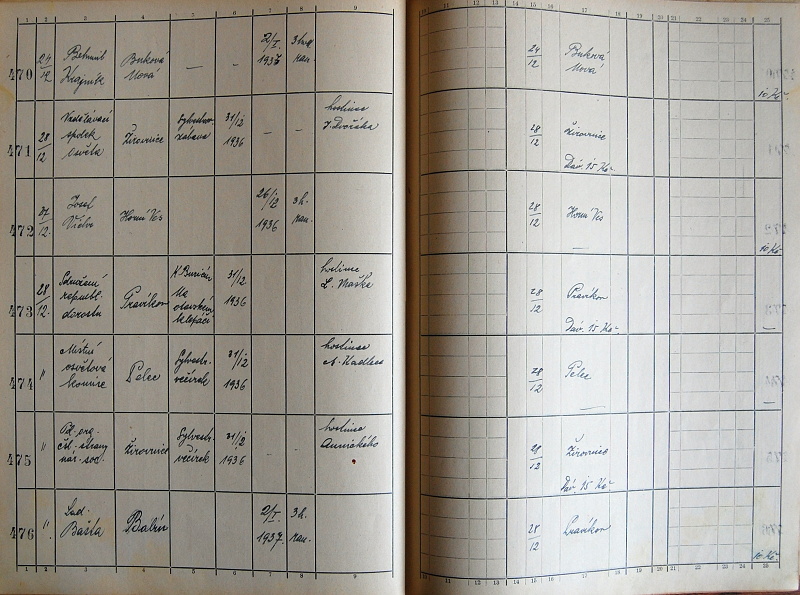 1 2 3 4 5 6 7 8 9
10 11 12 13 14 15 16 17 18 19 20 21 22 23 24 25
470 24/12 Bohumil Krajník Buková Nová — — 2/I. 1937 3 hod. ran.
24/12 Buková Nová
10 Kč
471 28/12 Vzdělávací spolek Osvěta Žirovnice Sylvestr. zábava 31/12 1936 — — hostinec J. Dvořáka
28/12 Žirovnice
Dáv. 15 Kč
472 27/12. Josef Horní Ves 26/12 1936 3 h. ran.
28/12 Horní Ves
—
10 Kč
473 28/12. Sdružení republ. dorostu Pravíkov 31/12 1936 hostinec L. Maška
28/12 Pravíkov
Dáv. 15 Kč
474 " Místní osvětová komise Pelec Sylvestr. večírek 31/12 1936 hostinec A. Kadlece
28/12 Pelec
—
475 " čsl. strany nár. soc. Žirovnice Sylvestr. večírek 31/12 1936 - - hostinec
28/12 Žirovnice
Dáv. 15 Kč
476 " Lad. Bašta 2/I. 1937. 3 h. ran.
28/12 Pravíkov
10 Kč
1 2 3 4 5 6 7 8 9
10 11 12 13 14 15 16 17 18 19 20 21 22 23 24 25